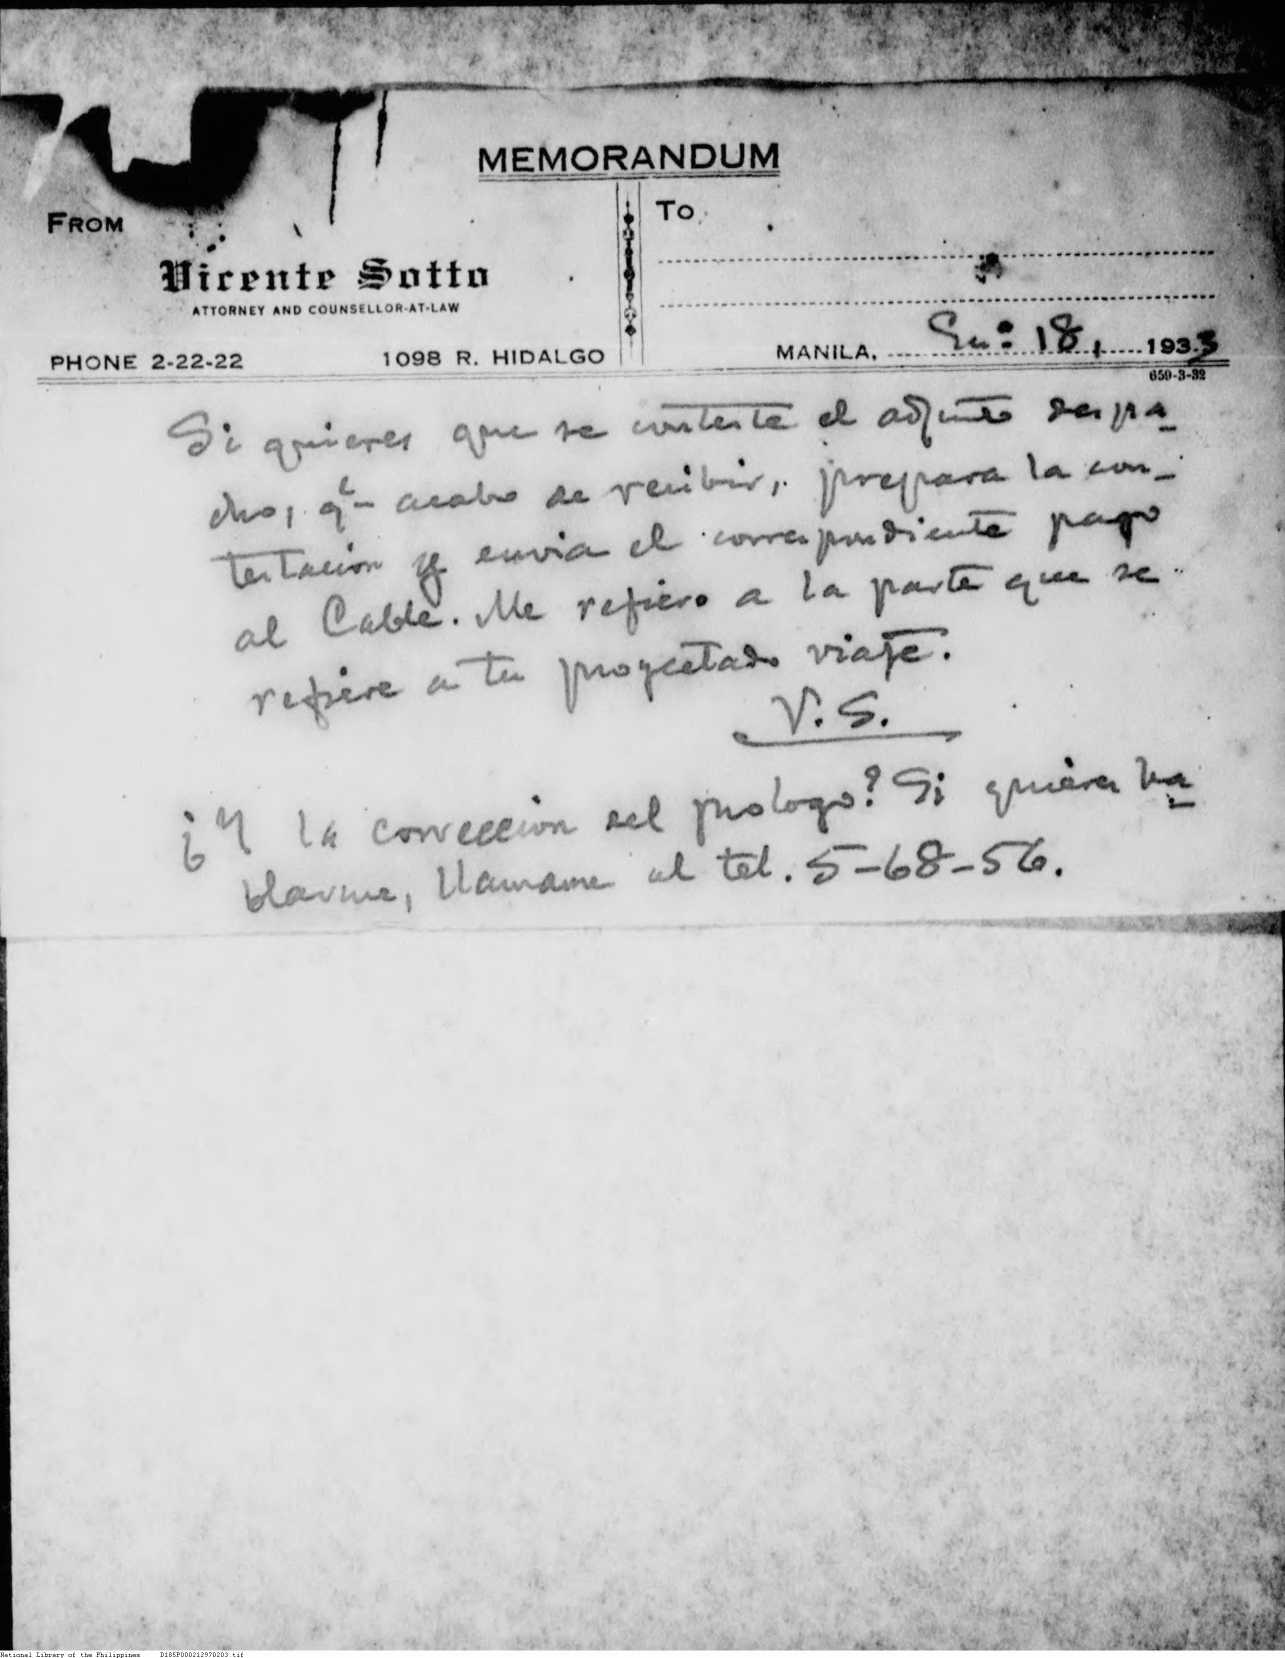 MEMORANDUM
FROM
To
Vicente Sotto
ATTORNEY AND COUNSELLOR-AT-LAW
PHONE 2-22-22 1098 R. HIDALGO
MANILA, En.º 18, 1933
659-3-32
Si quieres que se conteste el adjunto despa-
cho, q.e acabo de recibir, prepara la con-
testacion y envia el correspondiente pago
al Cable. Me refiero a la parte que se
refiere a tu proyectado viaje.
V. S.
¿Y la correccion del prologo? Si quieres ha-
blarme, llamame al tel. 5-68-56.
National Library of the Philippines D185P000212970203.tif